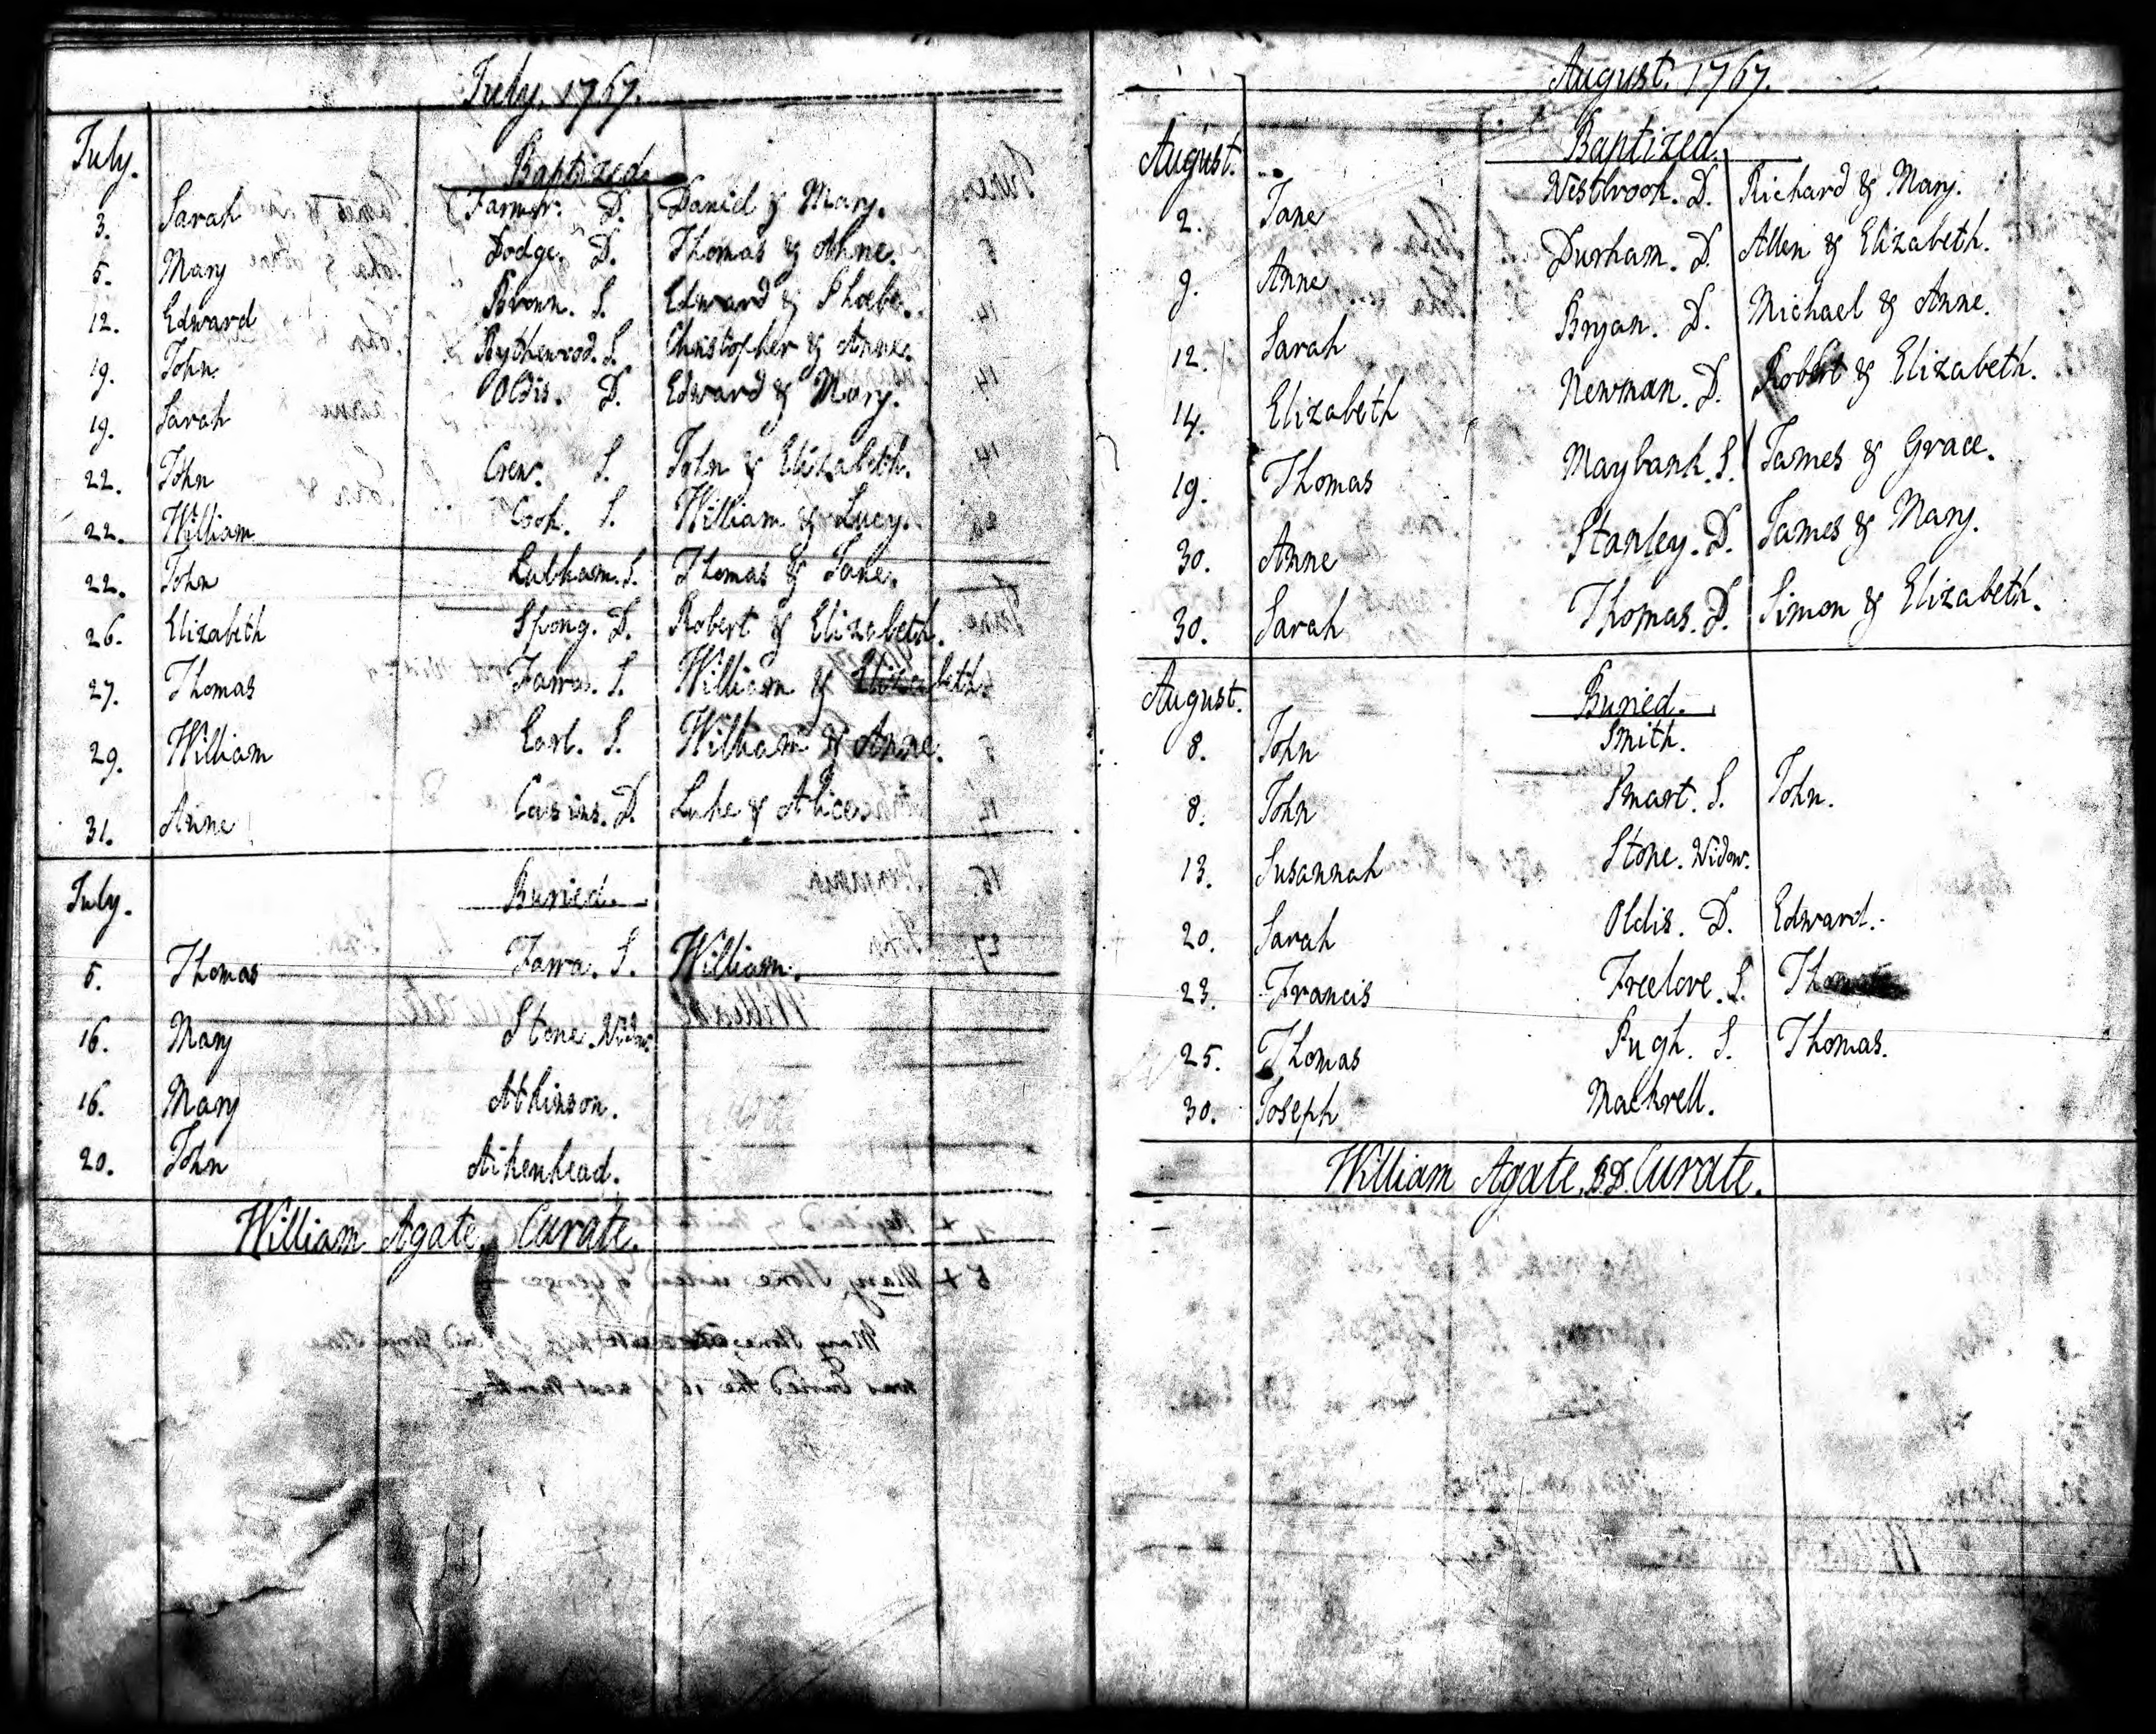 July. 1767.
July.
Baptized.
3. Sarah Farmer. D. Daniel & Mary.
5. Mary Dodge. D. Thomas & Anne.
12. Edward Brown. S. Edward & Phoebe.
19. John Bythewood. S. Christopher & Anne.
19. Sarah Oldis. D. Edward & Mary.
22. John Crew. S. John & Elizabeth.
22. William Cook. S. William & Lucy.
22. John S. Thomas & Jane.
26. Elizabeth Spong. D. Robert & Elizabeth.
27. Thomas Farra. S. William &
29. William Earl. S. William & Anne.
31. Anne Cosins. D. Luke & Alice.
July.
Buried.
5. Thomas Farra. S. William.
16. Mary Stone. Widow.
16. Mary Atkinson.
20. John Aikenhead.
William Agate. Curate.
August. 1767.
August.
Baptized.
2. Jane Westbrook. D. Richard & Mary.
9. Anne Durham. D. Allen & Elizabeth.
12. Sarah Bryan. D. Michael & Anne.
14. Elizabeth Newman. D. Robert & Elizabeth.
19. Thomas Maybank. S. James & Grace.
30. Anne Stanley. D. James & Mary.
30. Sarah Thomas. D. Simon & Elizabeth.
August.
Buried.
8. John Smith.
8. John Smart. S. John.
13. Susannah Stone. Widow.
20. Sarah Oldis. D. Edward.
23. Francis Freelove. S.
25. Thomas Pugh. S. Thomas.
30. Joseph Mackrell.
William Agate. B.D. Curate.